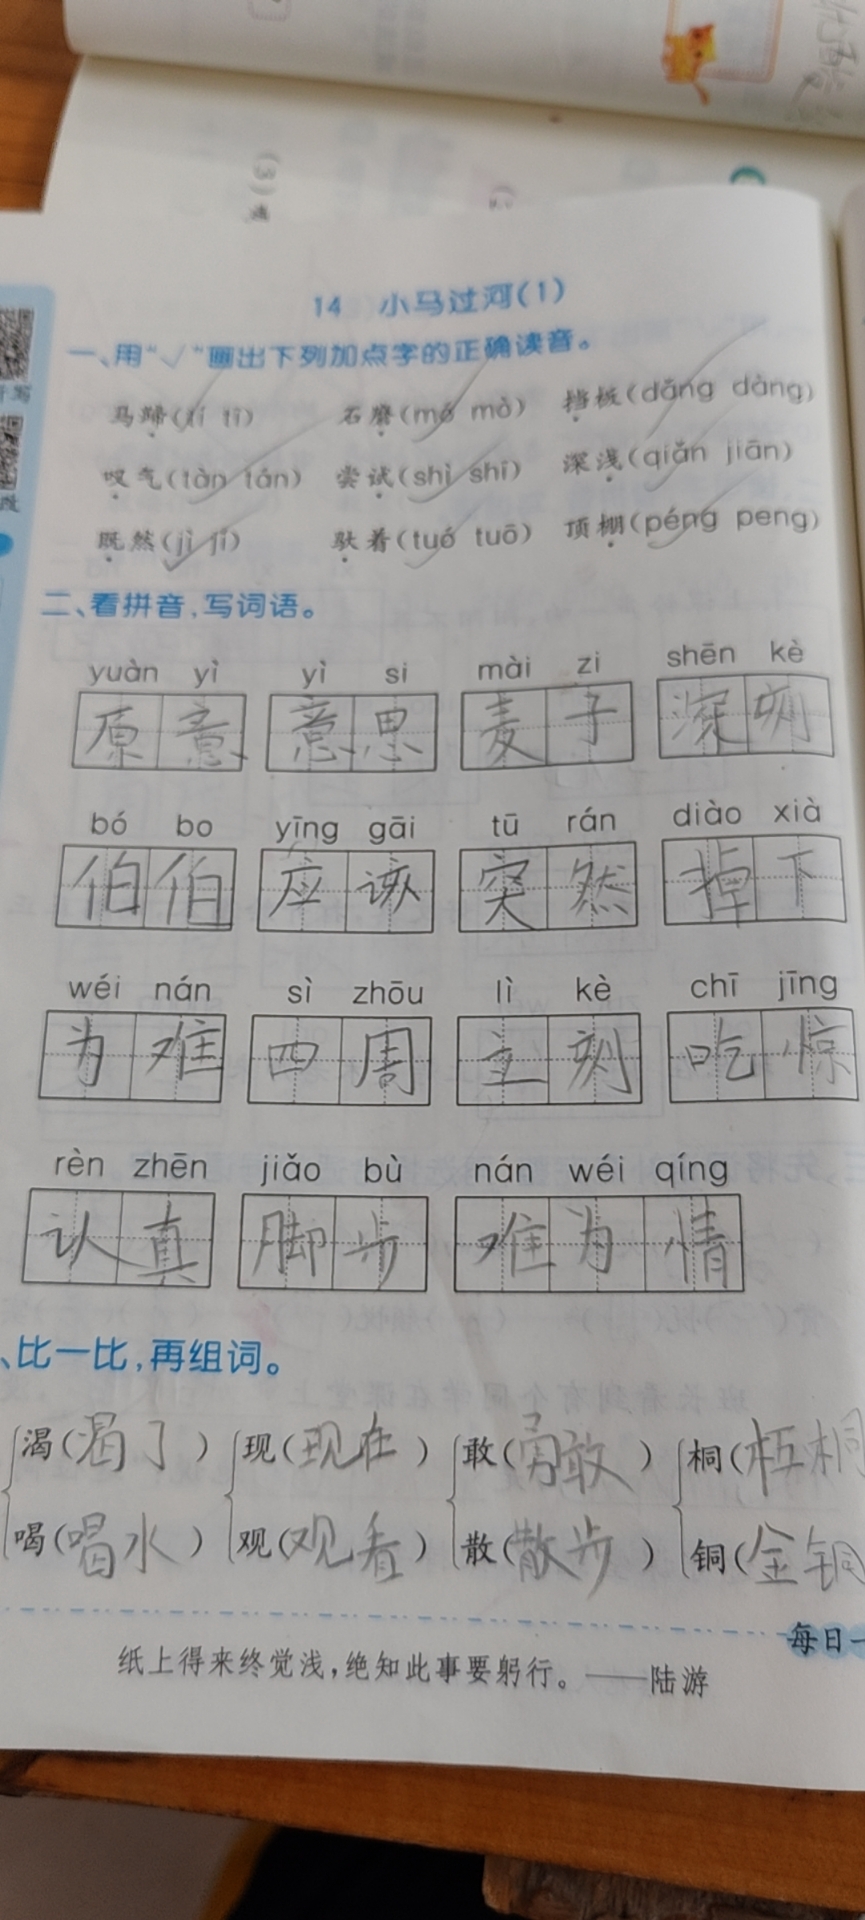 (3)
14 小马过河(1)
一、用“√”画出下列加点字的正确读音。
马蹄(tí tī) 石磨(mó mò) 挡板(dǎng dàng)
叹气(tàn tán) 尝试(shì shī) 深浅(qiǎn jiān)
既然(jì jí) 驮着(tuó tuō) 顶棚(péng peng)
二、看拼音,写词语。
yuàn yì yì si mài zi shēn kè
原意 意思 麦子 深刻
bó bo yīng gāi tū rán diào xià
伯伯 应该 突然 掉下
wéi nán sì zhōu lì kè chī jīng
为难 四周 立刻 吃惊
rèn zhēn jiǎo bù nán wéi qíng
认真 脚步 难为情
、比一比,再组词。
渴(渴了) 现(现在) 敢(勇敢) 桐(梧桐
喝(喝水) 观(观看) 散(散步) 铜(金铜
每日一
纸上得来终觉浅,绝知此事要躬行。——陆游